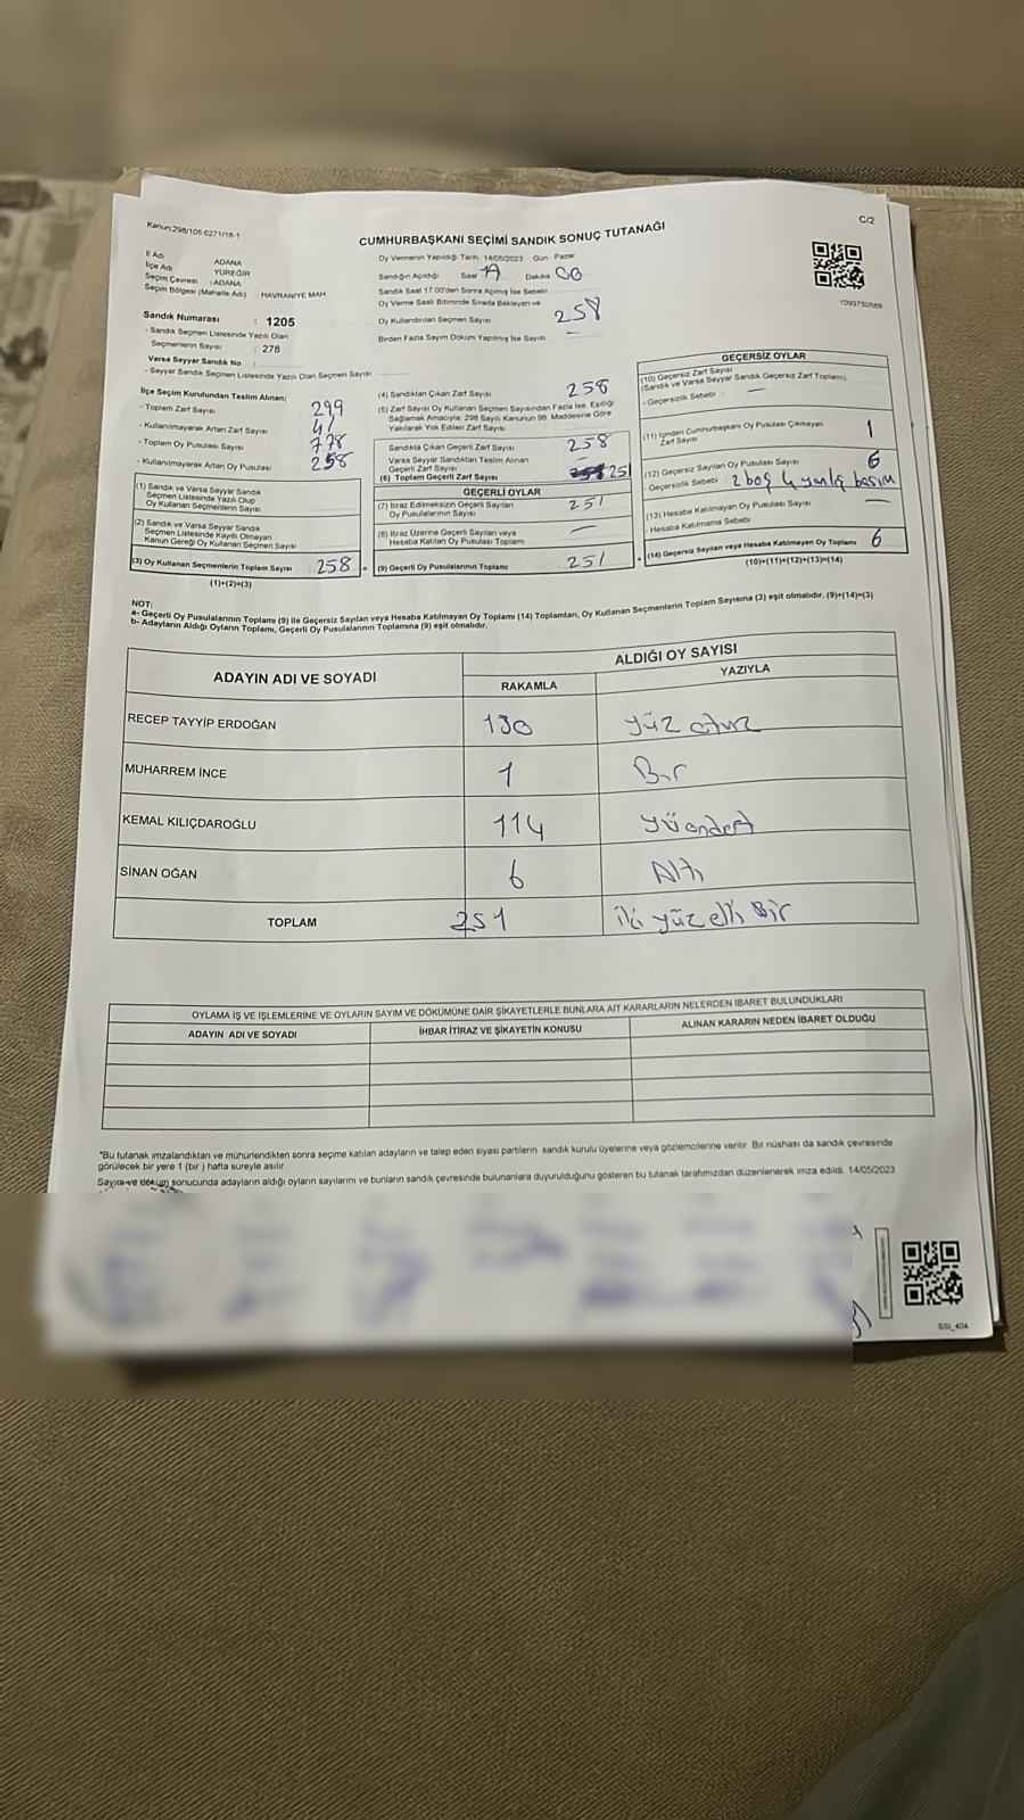 C/2
CUMHURBAŞKANI SEÇİMİ SANDIK SONUÇ TUTANAĞI
İl Adı ADANA
İlçe Adı YÜREĞİR
Seçim Çevresi : ADANA
Seçim Bölgesi (Mahalle Adı) : HAVRANİYE MAH
Sandık Numarası : 1205
- Sandık Seçmen Listesinde Yazılı Olan
Seçmenlerin Sayısı : 278
Varsa Seyyar Sandık No :
- Seyyar Sandık Seçmen Listesinde Yazılı Olan Seçmen Sayısı
Oy Vermenin Yapıldığı Tarih: 14/05/2023 Gün: Pazar
Sandığın Açıldığı Saat Dakika
Sandık Saat 17.00'den Sonra Açılmış İse Sebebi
Oy Verme Saati Bitiminde Sırada Bekleyen ve
Oy Kullandırılan Seçmen Sayısı 258
Birden Fazla Sayım Döküm Yapılmış İse Sayısı —
İlçe Seçim Kurulundan Teslim Alınan;
- Toplam Zarf Sayısı 299
- Kullanılmayarak Artan Zarf Sayısı 41
- Toplam Oy Pusulası Sayısı
- Kullanılmayarak Artan Oy Pusulası 258
(1) Sandık ve Varsa Seyyar Sandık
Seçmen Listesinde Yazılı Olup
Oy Kullanan Seçmenlerin Sayısı
(2) Sandık ve Varsa Seyyar Sandık
Seçmen Listesinde Kayıtlı Olmayan
Kanun Gereği Oy Kullanan Seçmen Sayısı
(3) Oy Kullanan Seçmenlerin Toplam Sayısı 258
(1)+(2)=(3)
(4) Sandıktan Çıkan Zarf Sayısı 258
(5) Zarf Sayısı Oy Kullanan Seçmen Sayısından Fazla İse, Eşitliği
Sağlamak Amacıyla, 298 Sayılı Kanunun 98. Maddesine Göre
Yakılarak Yok Edilen Zarf Sayısı —
Sandıkta Çıkan Geçerli Zarf Sayısı 258
Varsa Seyyar Sandıktan Teslim Alınan
Geçerli Zarf Sayısı
(6) Toplam Geçerli Zarf Sayısı 251
GEÇERLİ OYLAR
(7) İtiraz Edilmeksizin Geçerli Sayılan
Oy Pusulalarının Sayısı 251
(8) İtiraz Üzerine Geçerli Sayılan veya
Hesaba Katılan Oy Pusulası Toplamı —
(9) Geçerli Oy Pusulalarının Toplamı 251
GEÇERSİZ OYLAR
(10) Geçersiz Zarf Sayısı
(Sandık ve Varsa Seyyar Sandık Geçersiz Zarf Toplamı) —
- Geçersizlik Sebebi
(11) İçinden Cumhurbaşkanı Oy Pusulası Çıkmayan
Zarf Sayısı 1
(12) Geçersiz Sayılan Oy Pusulası Sayısı 6
Geçersizlik Sebebi 2 boş 4 yanlış basım
(13) Hesaba Katılmayan Oy Pusulası Sayısı —
- Hesaba Katılmama Sebebi
(14) Geçersiz Sayılan veya Hesaba Katılmayan Oy Toplamı 6
(10)+(11)+(12)+(13)=(14)
NOT:
a- Geçerli Oy Pusulalarının Toplamı (9) ile Geçersiz Sayılan veya Hesaba Katılmayan Oy Toplamı (14) Toplamları, Oy Kullanan Seçmenlerin Toplam Sayısına (3) eşit olmalıdır. (9)+(14)=(3)
b- Adayların Aldığı Oyların Toplamı, Geçerli Oy Pusulalarının Toplamına (9) eşit olmalıdır.
ADAYIN ADI VE SOYADI
ALDIĞI OY SAYISI
RAKAMLA YAZIYLA
RECEP TAYYİP ERDOĞAN 130 yüz otuz
MUHARREM İNCE 1 Bir
KEMAL KILIÇDAROĞLU 114 yüondört
SİNAN OĞAN 6 Altı
TOPLAM 251 iki yüz elli Bir
OYLAMA İŞ VE İŞLEMLERİNE VE OYLARIN SAYIM VE DÖKÜMÜNE DAİR ŞİKAYETLERLE BUNLARA AİT KARARLARIN NELERDEN İBARET BULUNDUKLARI
ADAYIN ADI VE SOYADI İHBAR İTİRAZ VE ŞİKAYETİN KONUSU ALINAN KARARIN NEDEN İBARET OLDUĞU
*Bu tutanak imzalandıktan ve mühürlendikten sonra seçime katılan adayların ve talep eden siyasi partilerin sandık kurulu üyelerine veya gözlemcilerine verilir. Bir nüshası da sandık çevresinde
görülecek bir yere 1 (bir ) hafta süreyle asılır.
Sayım ve döküm sonucunda adayların aldığı oyların sayılarını ve bunların sandık çevresinde bulunanlara duyurulduğunu gösteren bu tutanak tarafımızdan düzenlenerek imza edildi. 14/05/2023